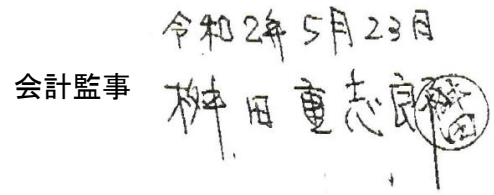 令和2年5月23日
会計監事 桝田重志郎